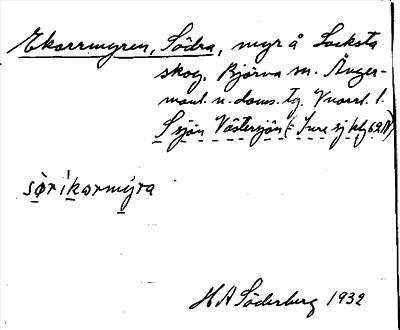 Ekorrmyren, Södra, myr å Locksta
skog, Björna sn. Ånger-
manl. n. doms. tg. Vnorrl. l.
S sjön Västersjön (= Inre sj kbl 62 N)
sørikormýra
H A Söderberg 1932